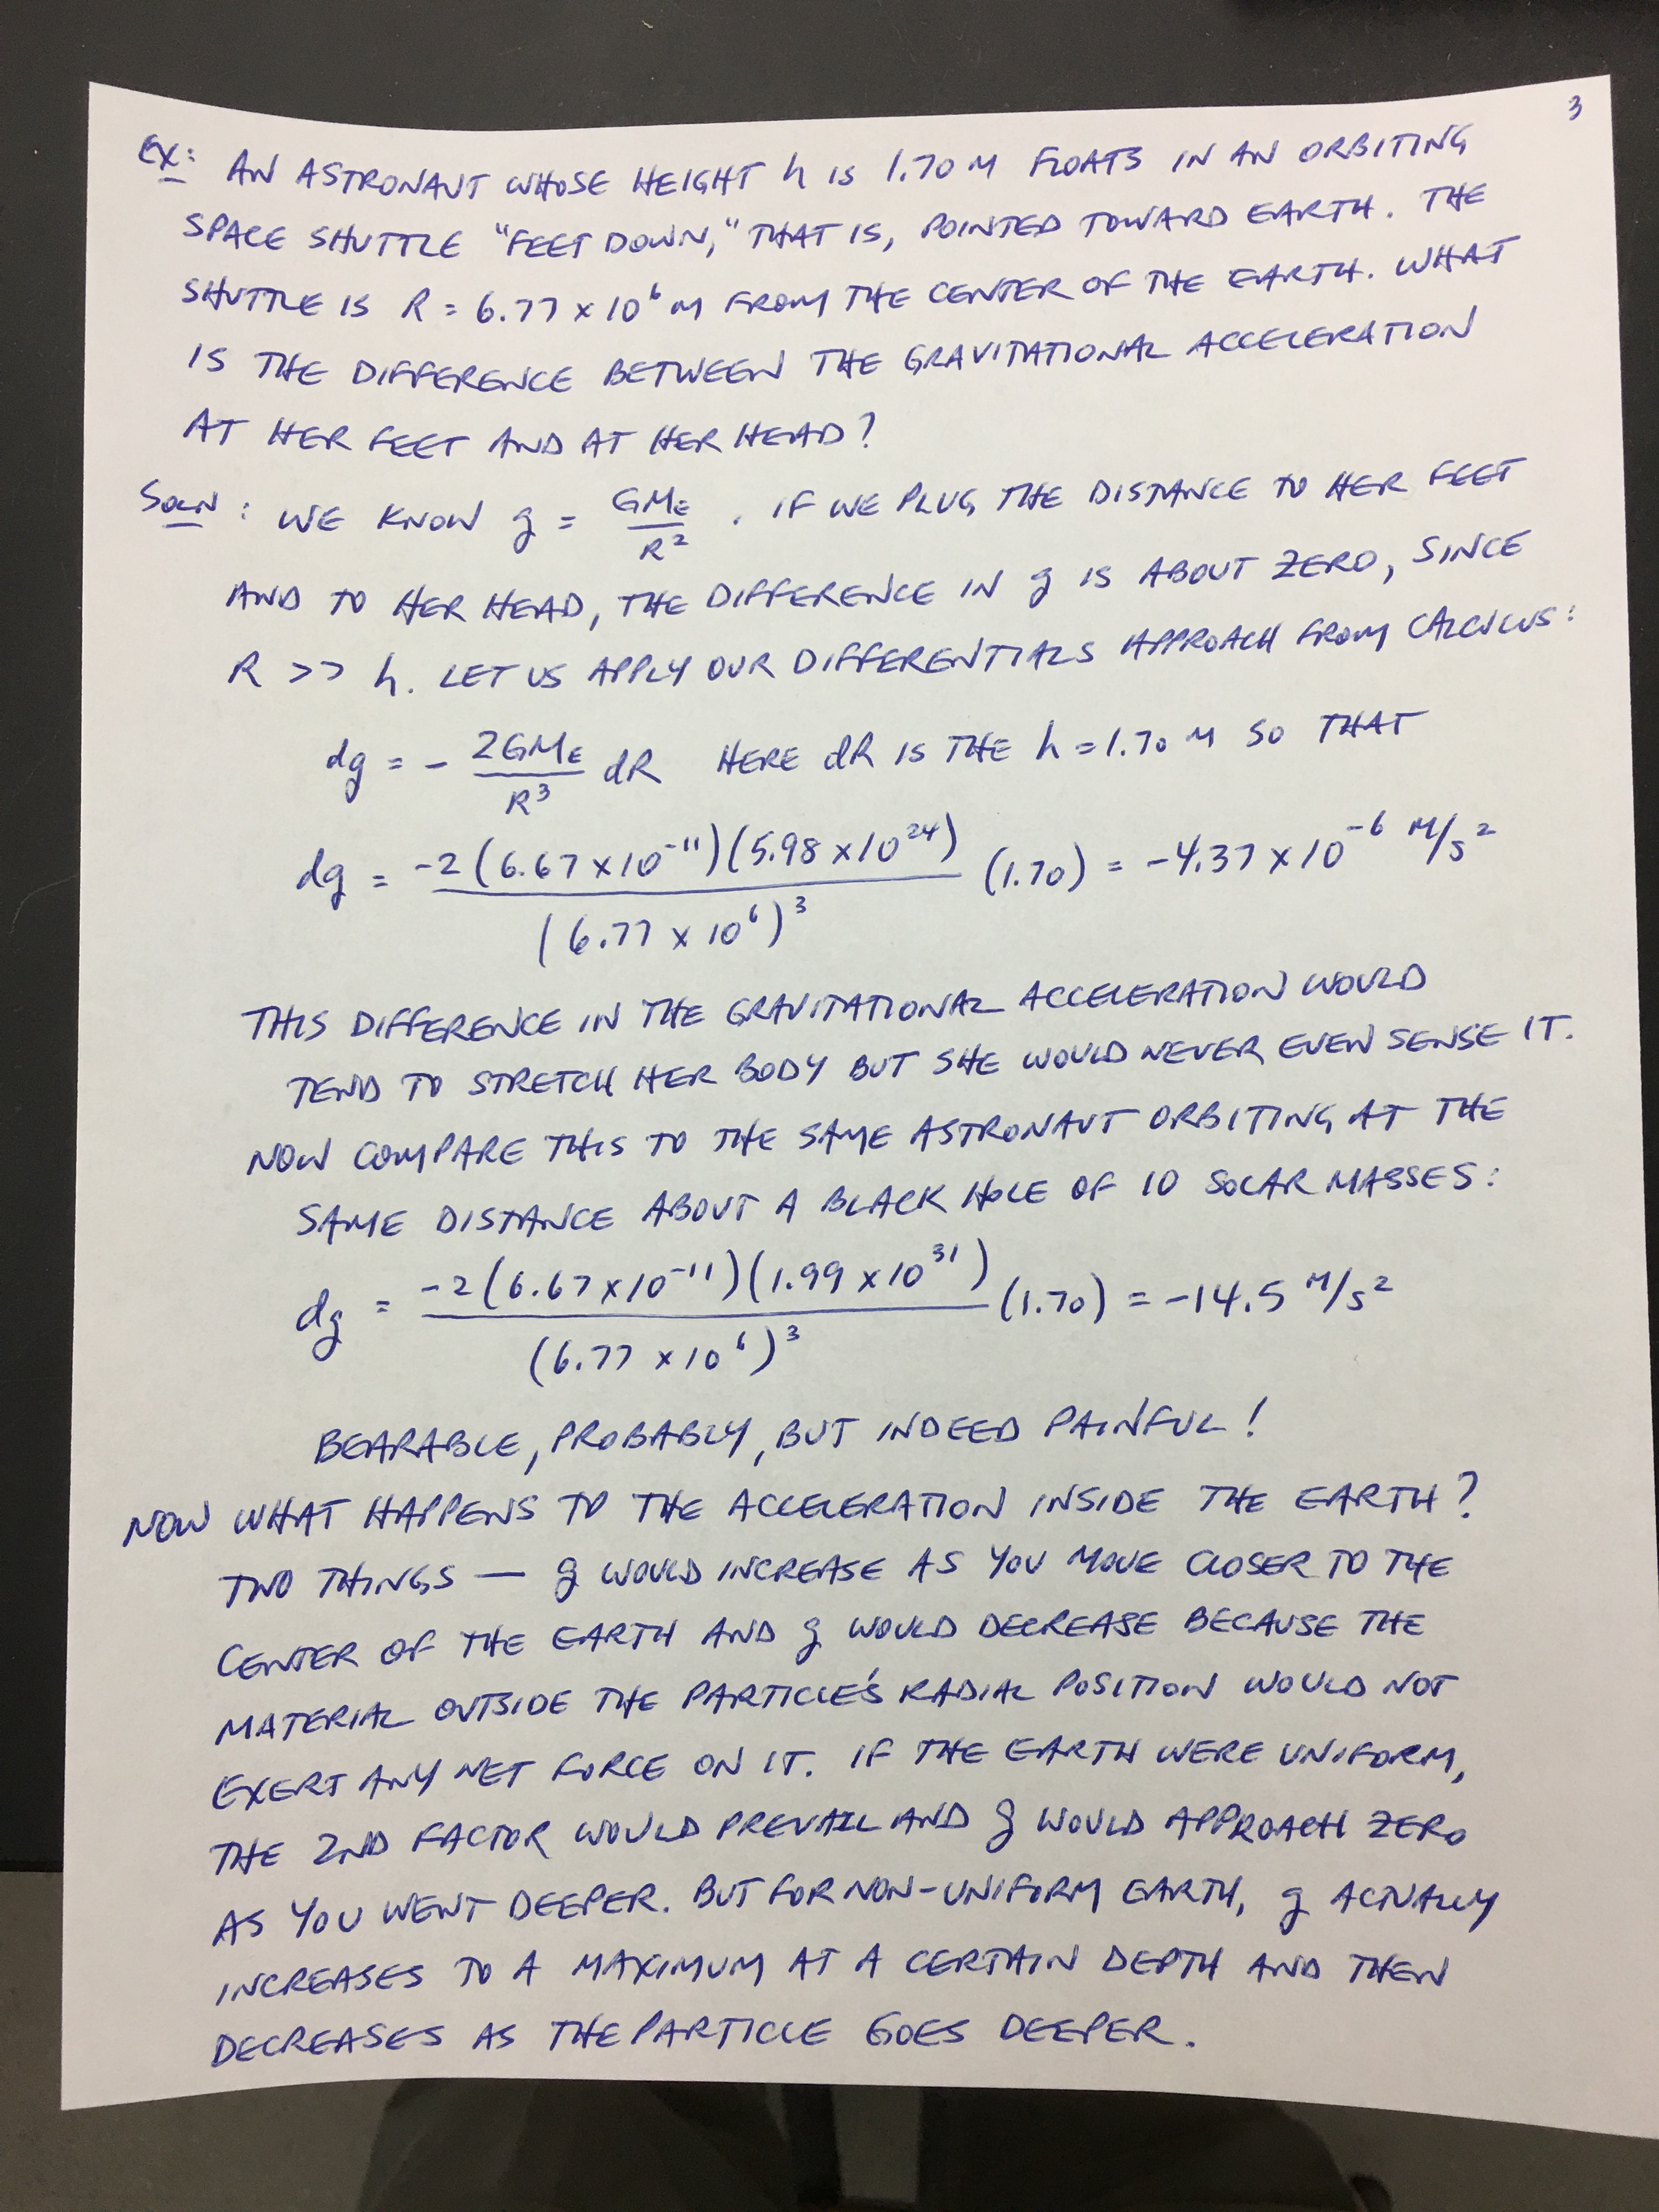 3
EX: AN ASTRONAUT WHOSE HEIGHT h IS 1.70 M FLOATS IN AN ORBITING
SPACE SHUTTLE "FEET DOWN," THAT IS, POINTED TOWARD EARTH. THE
SHUTTLE IS R = 6.77 × 10⁶ M FROM THE CENTER OF THE EARTH. WHAT
IS THE DIFFERENCE BETWEEN THE GRAVITATIONAL ACCELERATION
AT HER FEET AND AT HER HEAD?
SOLN: WE KNOW g = GM_E / R². IF WE PLUG THE DISTANCE TO HER FEET
AND TO HER HEAD, THE DIFFERENCE IN g IS ABOUT ZERO, SINCE
R >> h. LET US APPLY OUR DIFFERENTIALS APPROACH FROM CALCULUS:
dg = - 2GM_E / R³ dR HERE dR IS THE h = 1.70 M SO THAT
dg = -2 (6.67 × 10⁻¹¹)(5.98 × 10²⁴) / (6.77 × 10⁶)³ (1.70) = -4.37 × 10⁻⁶ M/S²
THIS DIFFERENCE IN THE GRAVITATIONAL ACCELERATION WOULD
TEND TO STRETCH HER BODY BUT SHE WOULD NEVER EVEN SENSE IT.
NOW COMPARE THIS TO THE SAME ASTRONAUT ORBITING AT THE
SAME DISTANCE ABOUT A BLACK HOLE OF 10 SOLAR MASSES:
dg = -2 (6.67 × 10⁻¹¹)(1.99 × 10³¹) / (6.77 × 10⁶)³ (1.70) = -14.5 M/S²
BEARABLE, PROBABLY, BUT INDEED PAINFUL!
NOW WHAT HAPPENS TO THE ACCELERATION INSIDE THE EARTH?
TWO THINGS — g WOULD INCREASE AS YOU MOVE CLOSER TO THE
CENTER OF THE EARTH AND g WOULD DECREASE BECAUSE THE
MATERIAL OUTSIDE THE PARTICLE'S RADIAL POSITION WOULD NOT
EXERT ANY NET FORCE ON IT. IF THE EARTH WERE UNIFORM,
THE 2ND FACTOR WOULD PREVAIL AND g WOULD APPROACH ZERO
AS YOU WENT DEEPER. BUT FOR NON-UNIFORM EARTH, g ACTUALLY
INCREASES TO A MAXIMUM AT A CERTAIN DEPTH AND THEN
DECREASES AS THE PARTICLE GOES DEEPER.